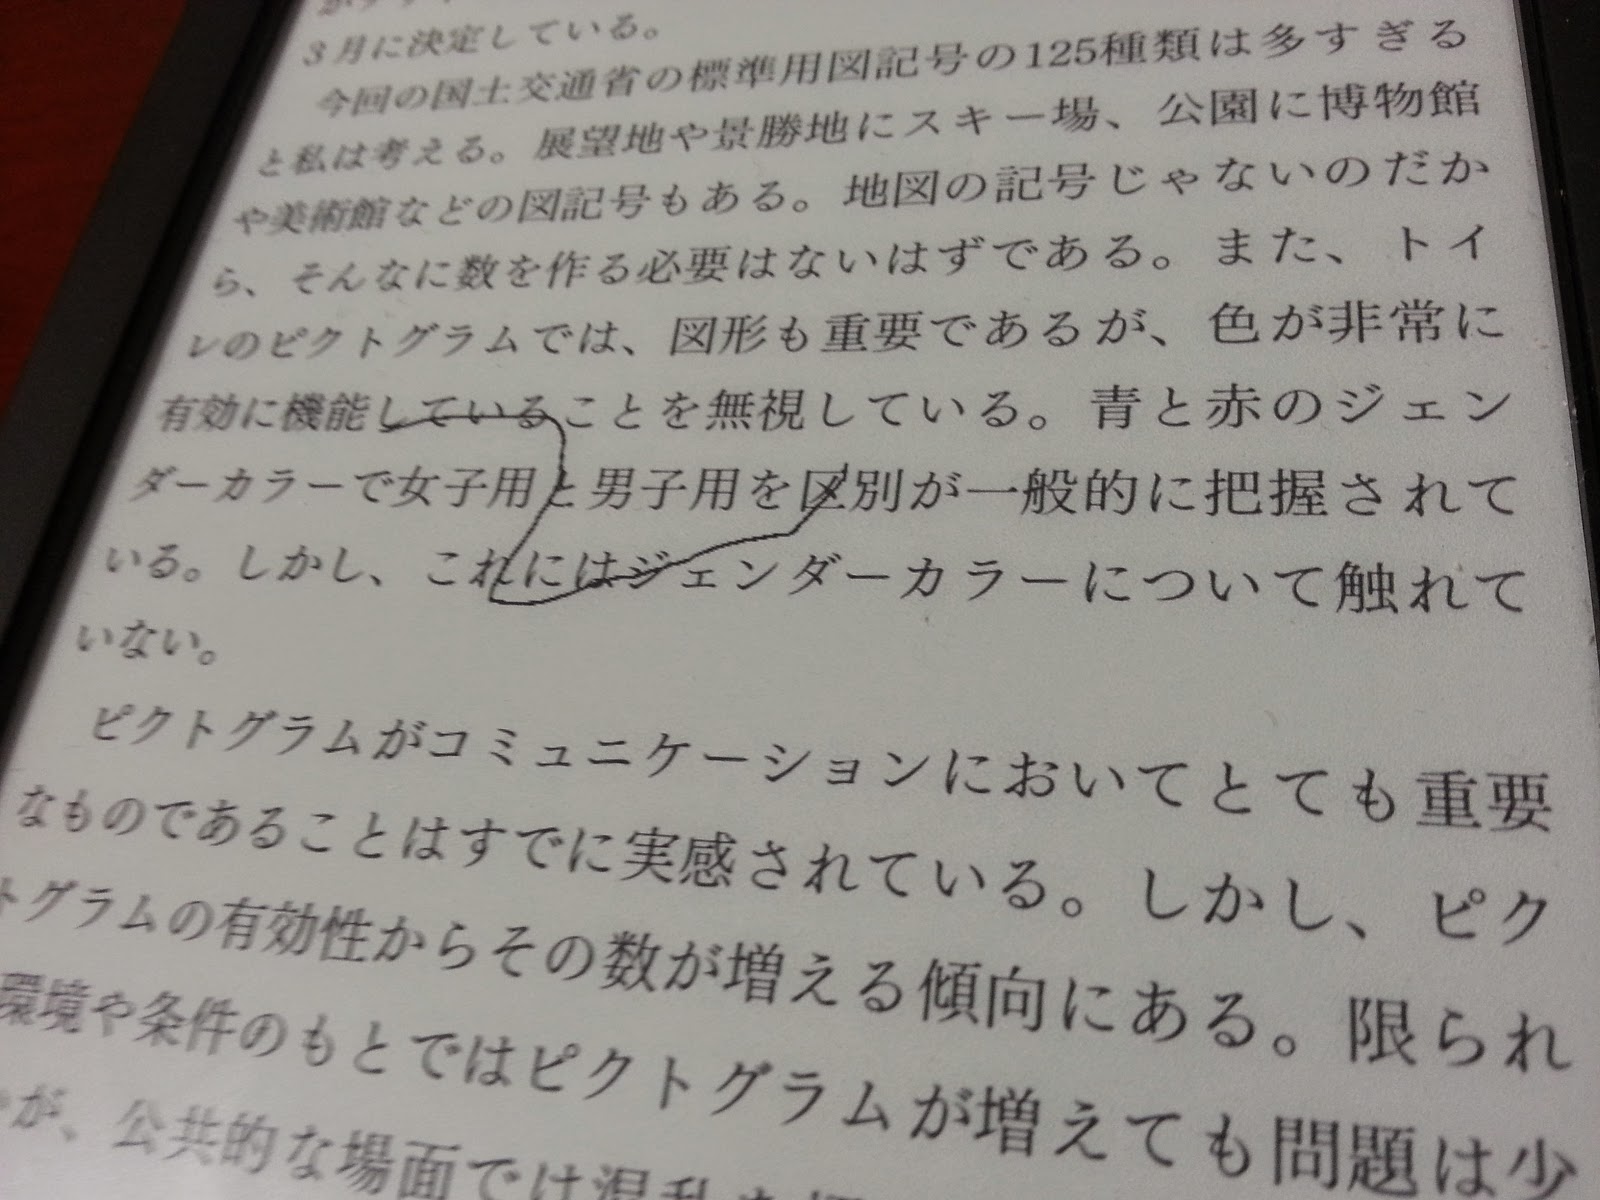 3月に決定している。
今回の国土交通省の標準用図記号の125種類は多すぎる
と私は考える。展望地や景勝地にスキー場、公園に博物館
や美術館などの図記号もある。地図の記号じゃないのだか
ら、そんなに数を作る必要はないはずである。また、トイ
レのピクトグラムでは、図形も重要であるが、色が非常に
有効に機能していることを無視している。青と赤のジェン
ダーカラーで女子用と男子用を区別が一般的に把握されて
いる。しかし、これにはジェンダーカラーについて触れて
いない。
ピクトグラムがコミュニケーションにおいてとても重要
なものであることはすでに実感されている。しかし、ピク
トグラムの有効性からその数が増える傾向にある。限られ
環境や条件のもとではピクトグラムが増えても問題は少
が、公共的な場面では混乱を